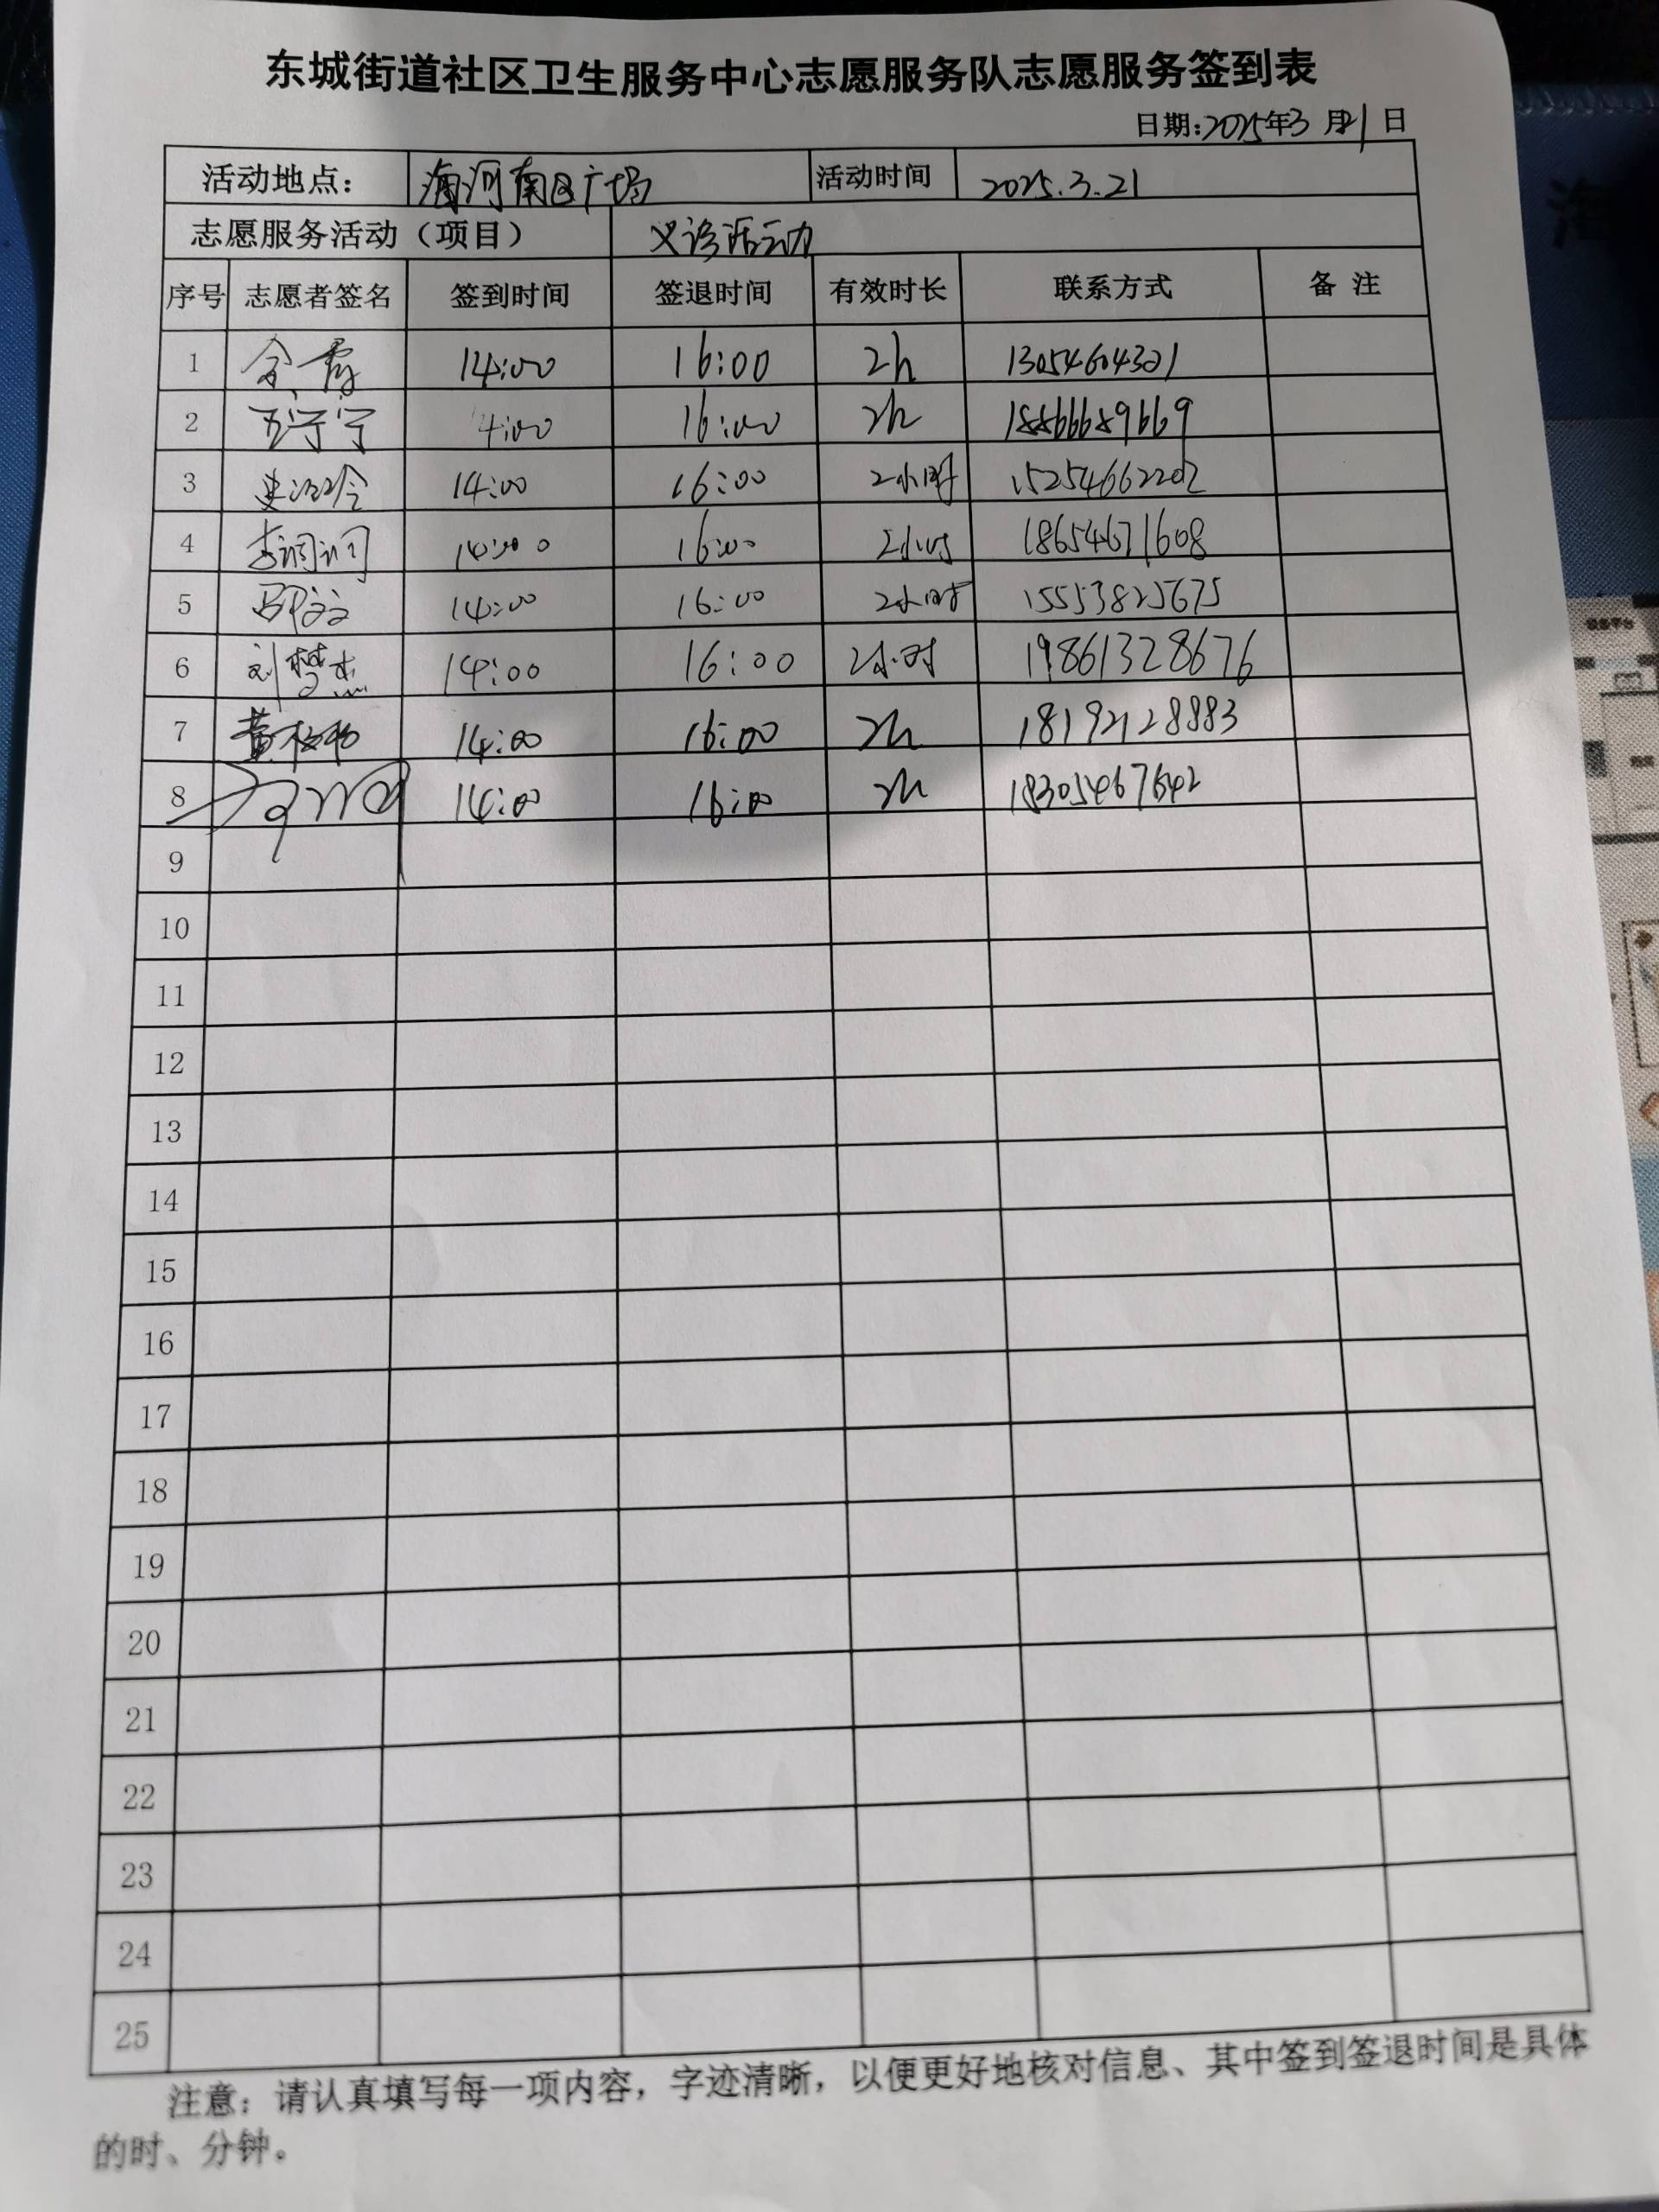 东城街道社区卫生服务中心志愿服务队志愿服务签到表
日期:2025年3月21日
活动地点: 海河南区广场 活动时间 2025.3.21
志愿服务活动（项目） 义诊活动
序号 志愿者签名 签到时间 签退时间 有效时长 联系方式 备注
1 14:00 16:00 2h 13054604321
2 宁宁 14:00 16:00 2h 18866689669
3 14:00 16:00 2小时
4 李润润 14:00 16:00 2小时 18654671608
5 14:00 16:00 2小时 15553825675
6 刘梦杰 14:00 16:00 2小时 19861328676
7 黄 14:00 16:00 2h 18192128883
8 14:00 16:00 2h 18305467642
9
10
11
12
13
14
15
16
17
18
19
20
21
22
23
24
25
注意：请认真填写每一项内容，字迹清晰，以便更好地核对信息、其中签到签退时间是具体
的时、分钟。